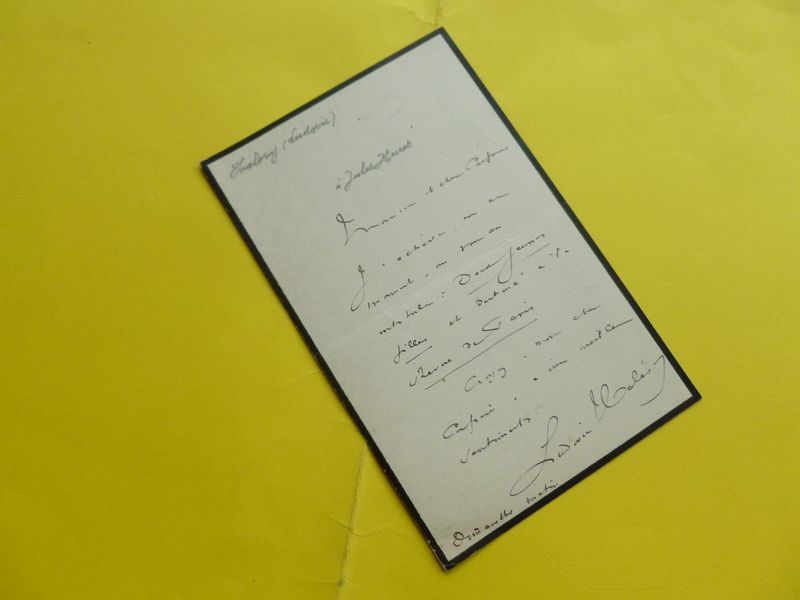 Halévy (Ludovic)
à Jules Huret
Monsieur et cher Confrère
J'achève, en ce
moment, un roman
intitulé: Deux Jeunes
filles et destiné à la
Revue de Paris
Croyez, mon cher
Confrère, à mes meilleurs
sentiments
Ludovic Halévy
Dimanche matin